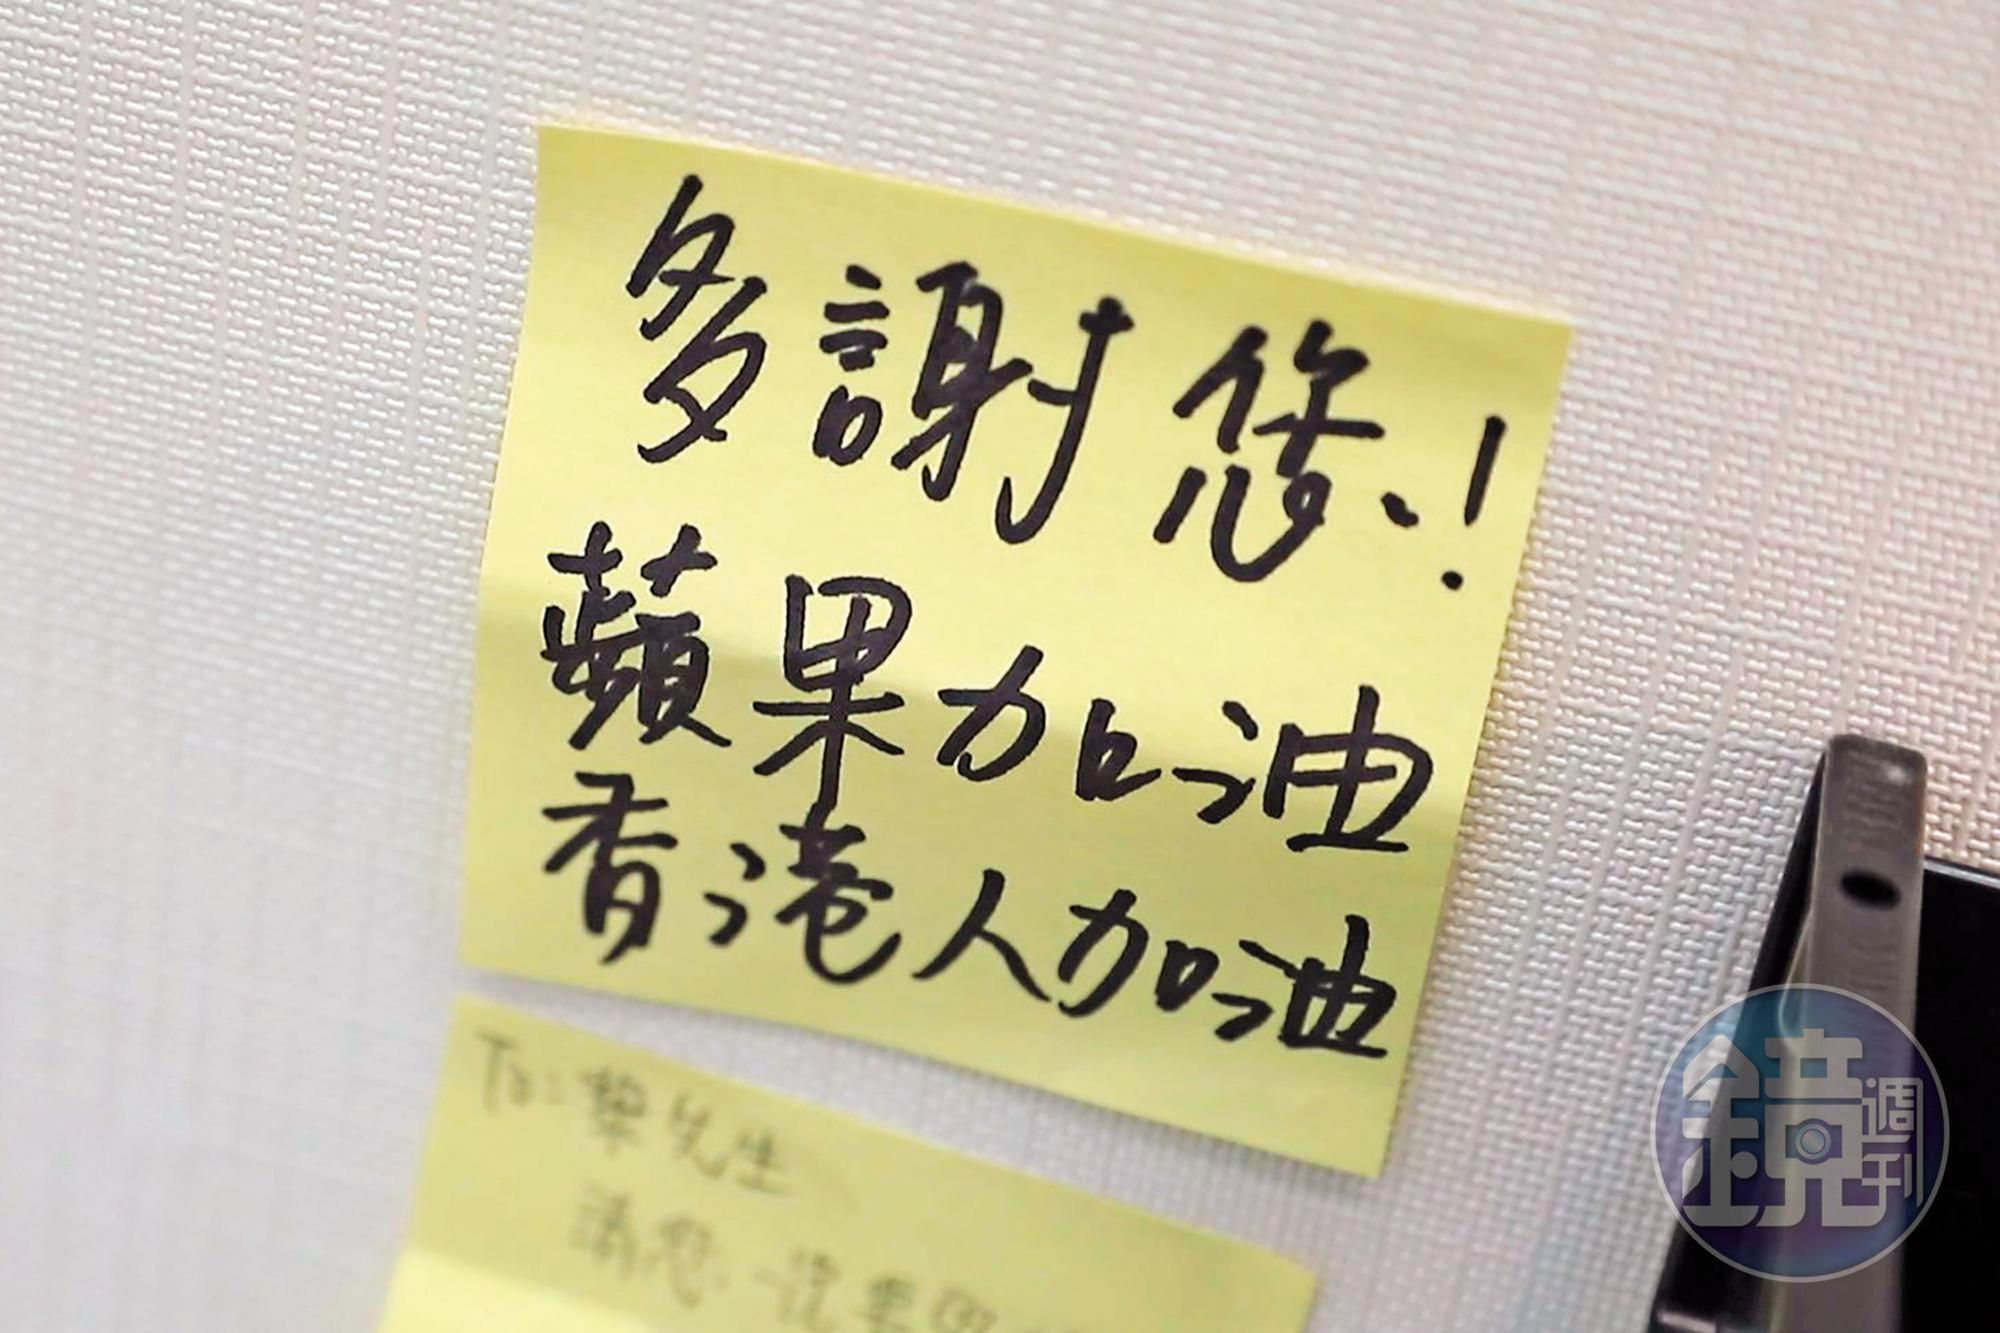 多謝您!
蘋果加油
香港人加油
To: 黎先生
請您一定要
鏡週刊